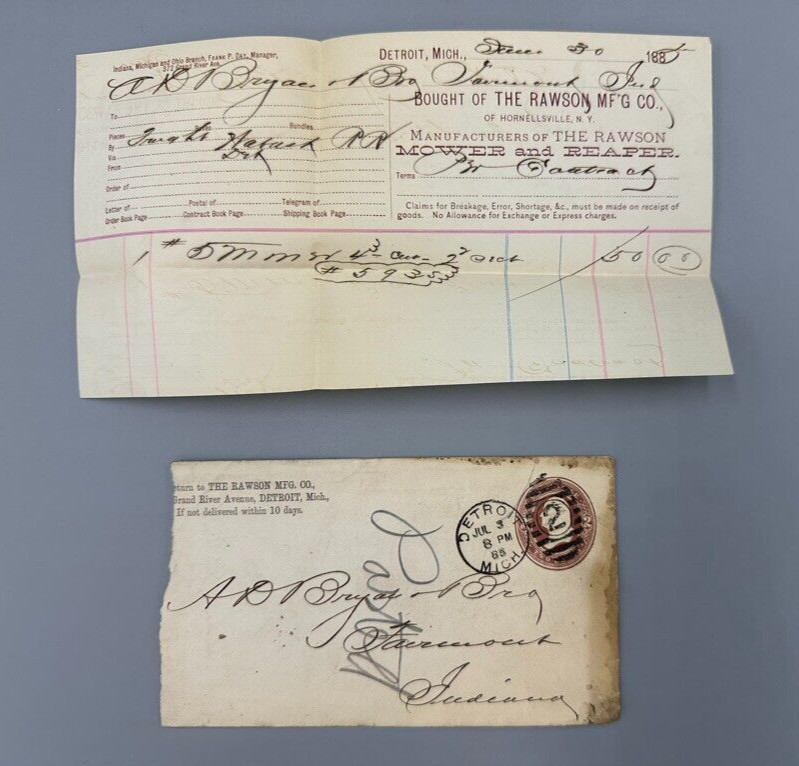 Indiana, Michigan and Ohio Branch, Frank P. Day, Manager,
372 Grand River Ave.
DETROIT, MICH., June 30 1885
A D Bryan & Bro Fairmont Ind
To
BOUGHT OF THE RAWSON MF'G CO.,
OF HORNELLSVILLE, N. Y.
Pieces Bundles
By Frught Wabash R R
Via Det
From
MANUFACTURERS OF THE RAWSON
MOWER and REAPER.
Terms Contract
Order of
Letter of Postal of Telegram of
Order Book Page Contract Book Page Shipping Book Page
Claims for Breakage, Error, Shortage, &c., must be made on receipt of
goods. No Allowance for Exchange or Express charges.
1 # 5 Mower 4 3 Cut 50 00
# 5935
eturn to THE RAWSON MFG. CO.,
Grand River Avenue, DETROIT, Mich.,
If not delivered within 10 days.
DETROIT
JUL 3
8 PM
85
MICH.
2
A D Bryan & Bro
Fairmont
Indiana